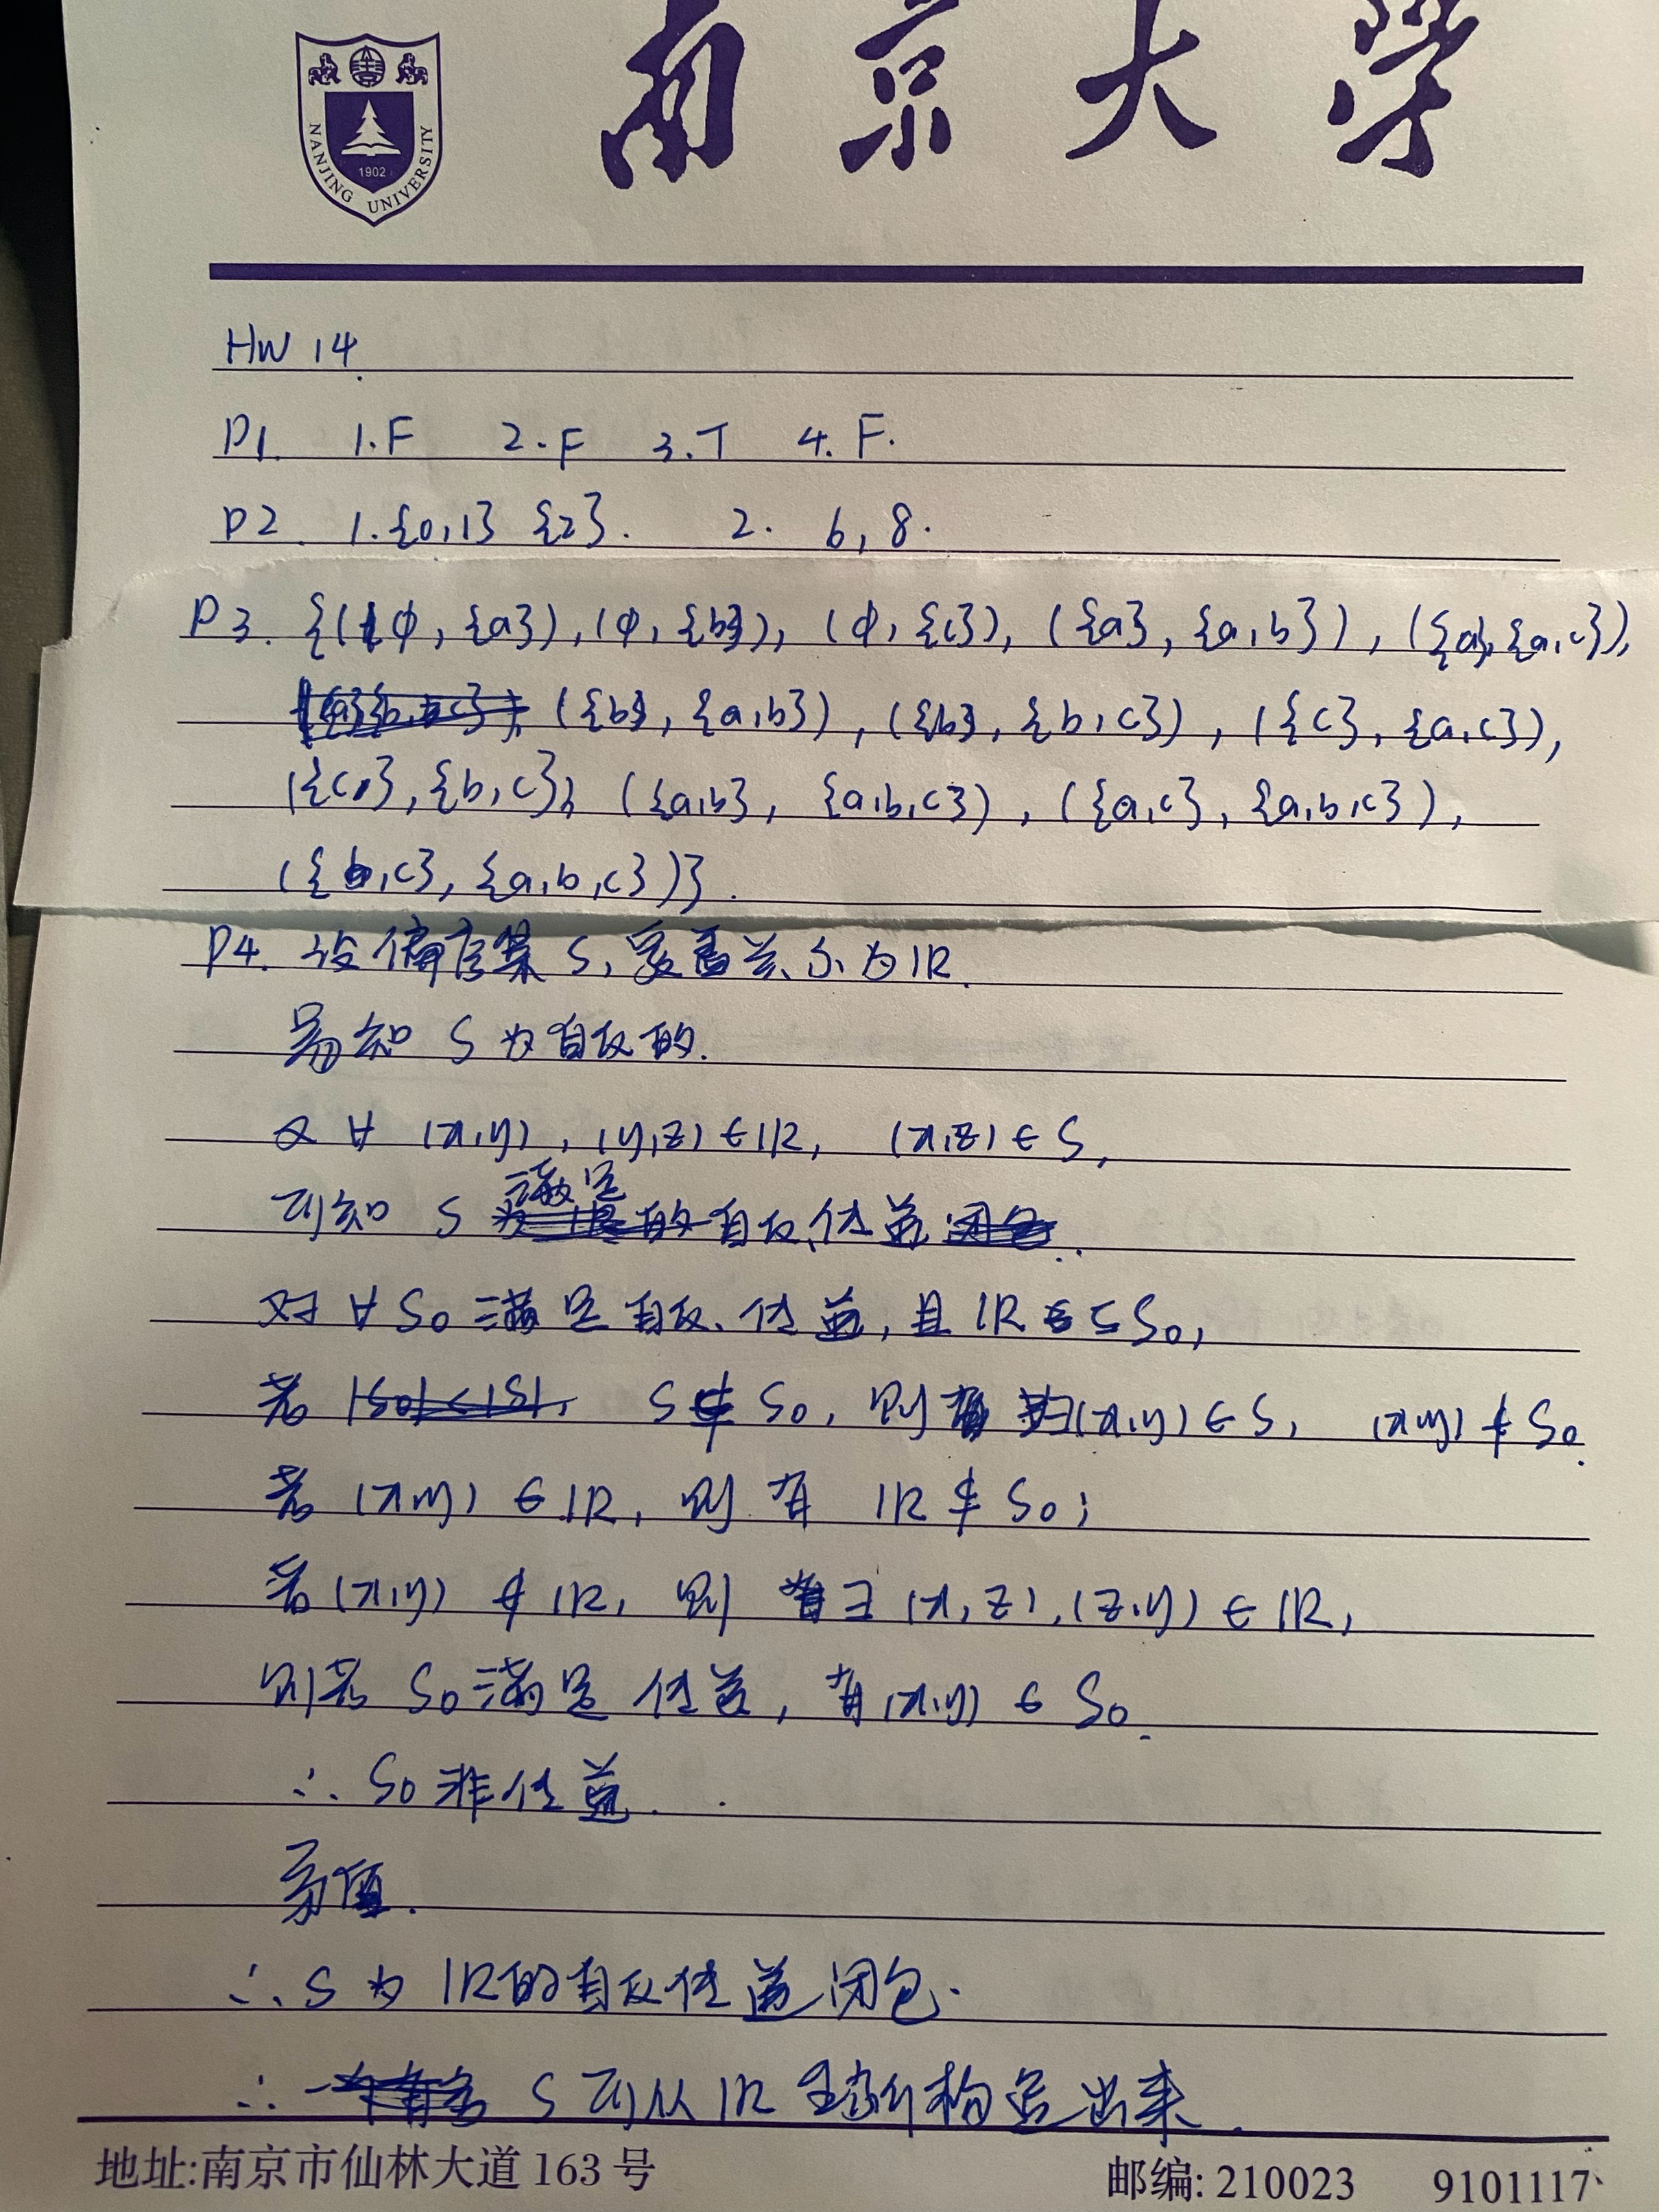 南京大学
NANJING UNIVERSITY
1902
HW 14
P1. 1.F 2.F 3.T 4.F.
P2. 1.{0,1} {2}. 2. 6,8.
P3. {(∅,{a}),(∅,{b}),(∅,{c}),({a},{a,b}),({a},{a,c}),
({b},{a,b}),({b},{b,c}),({c},{a,c}),
({c},{b,c}),({a,b},{a,b,c}),({a,c},{a,b,c}),
({b,c},{a,b,c})}.
P4. 设偏序集 S,覆盖关系为 IR.
易知 S 为自反的.
又 ∀ (x,y),(y,z)∈IR, (x,z)∈S,
可知 S 满足自反、传递.
对 ∀ S₀ 满足自反、传递,且 IR ⊆ S₀,
若 S ⊄ S₀,则 ∃(x,y)∈S, (x,y)∉S₀.
若 (x,y)∈IR,则有 IR ⊄ S₀;
若 (x,y)∉IR,则 ∃ (x,z),(z,y)∈IR,
则若 S₀ 满足传递,有(x,y)∈S₀.
∴ S₀ 非传递.
矛盾.
∴ S 为 IR 的自反传递闭包.
∴ S 可从 IR 重新构造出来.
地址:南京市仙林大道 163 号 邮编: 210023 9101117